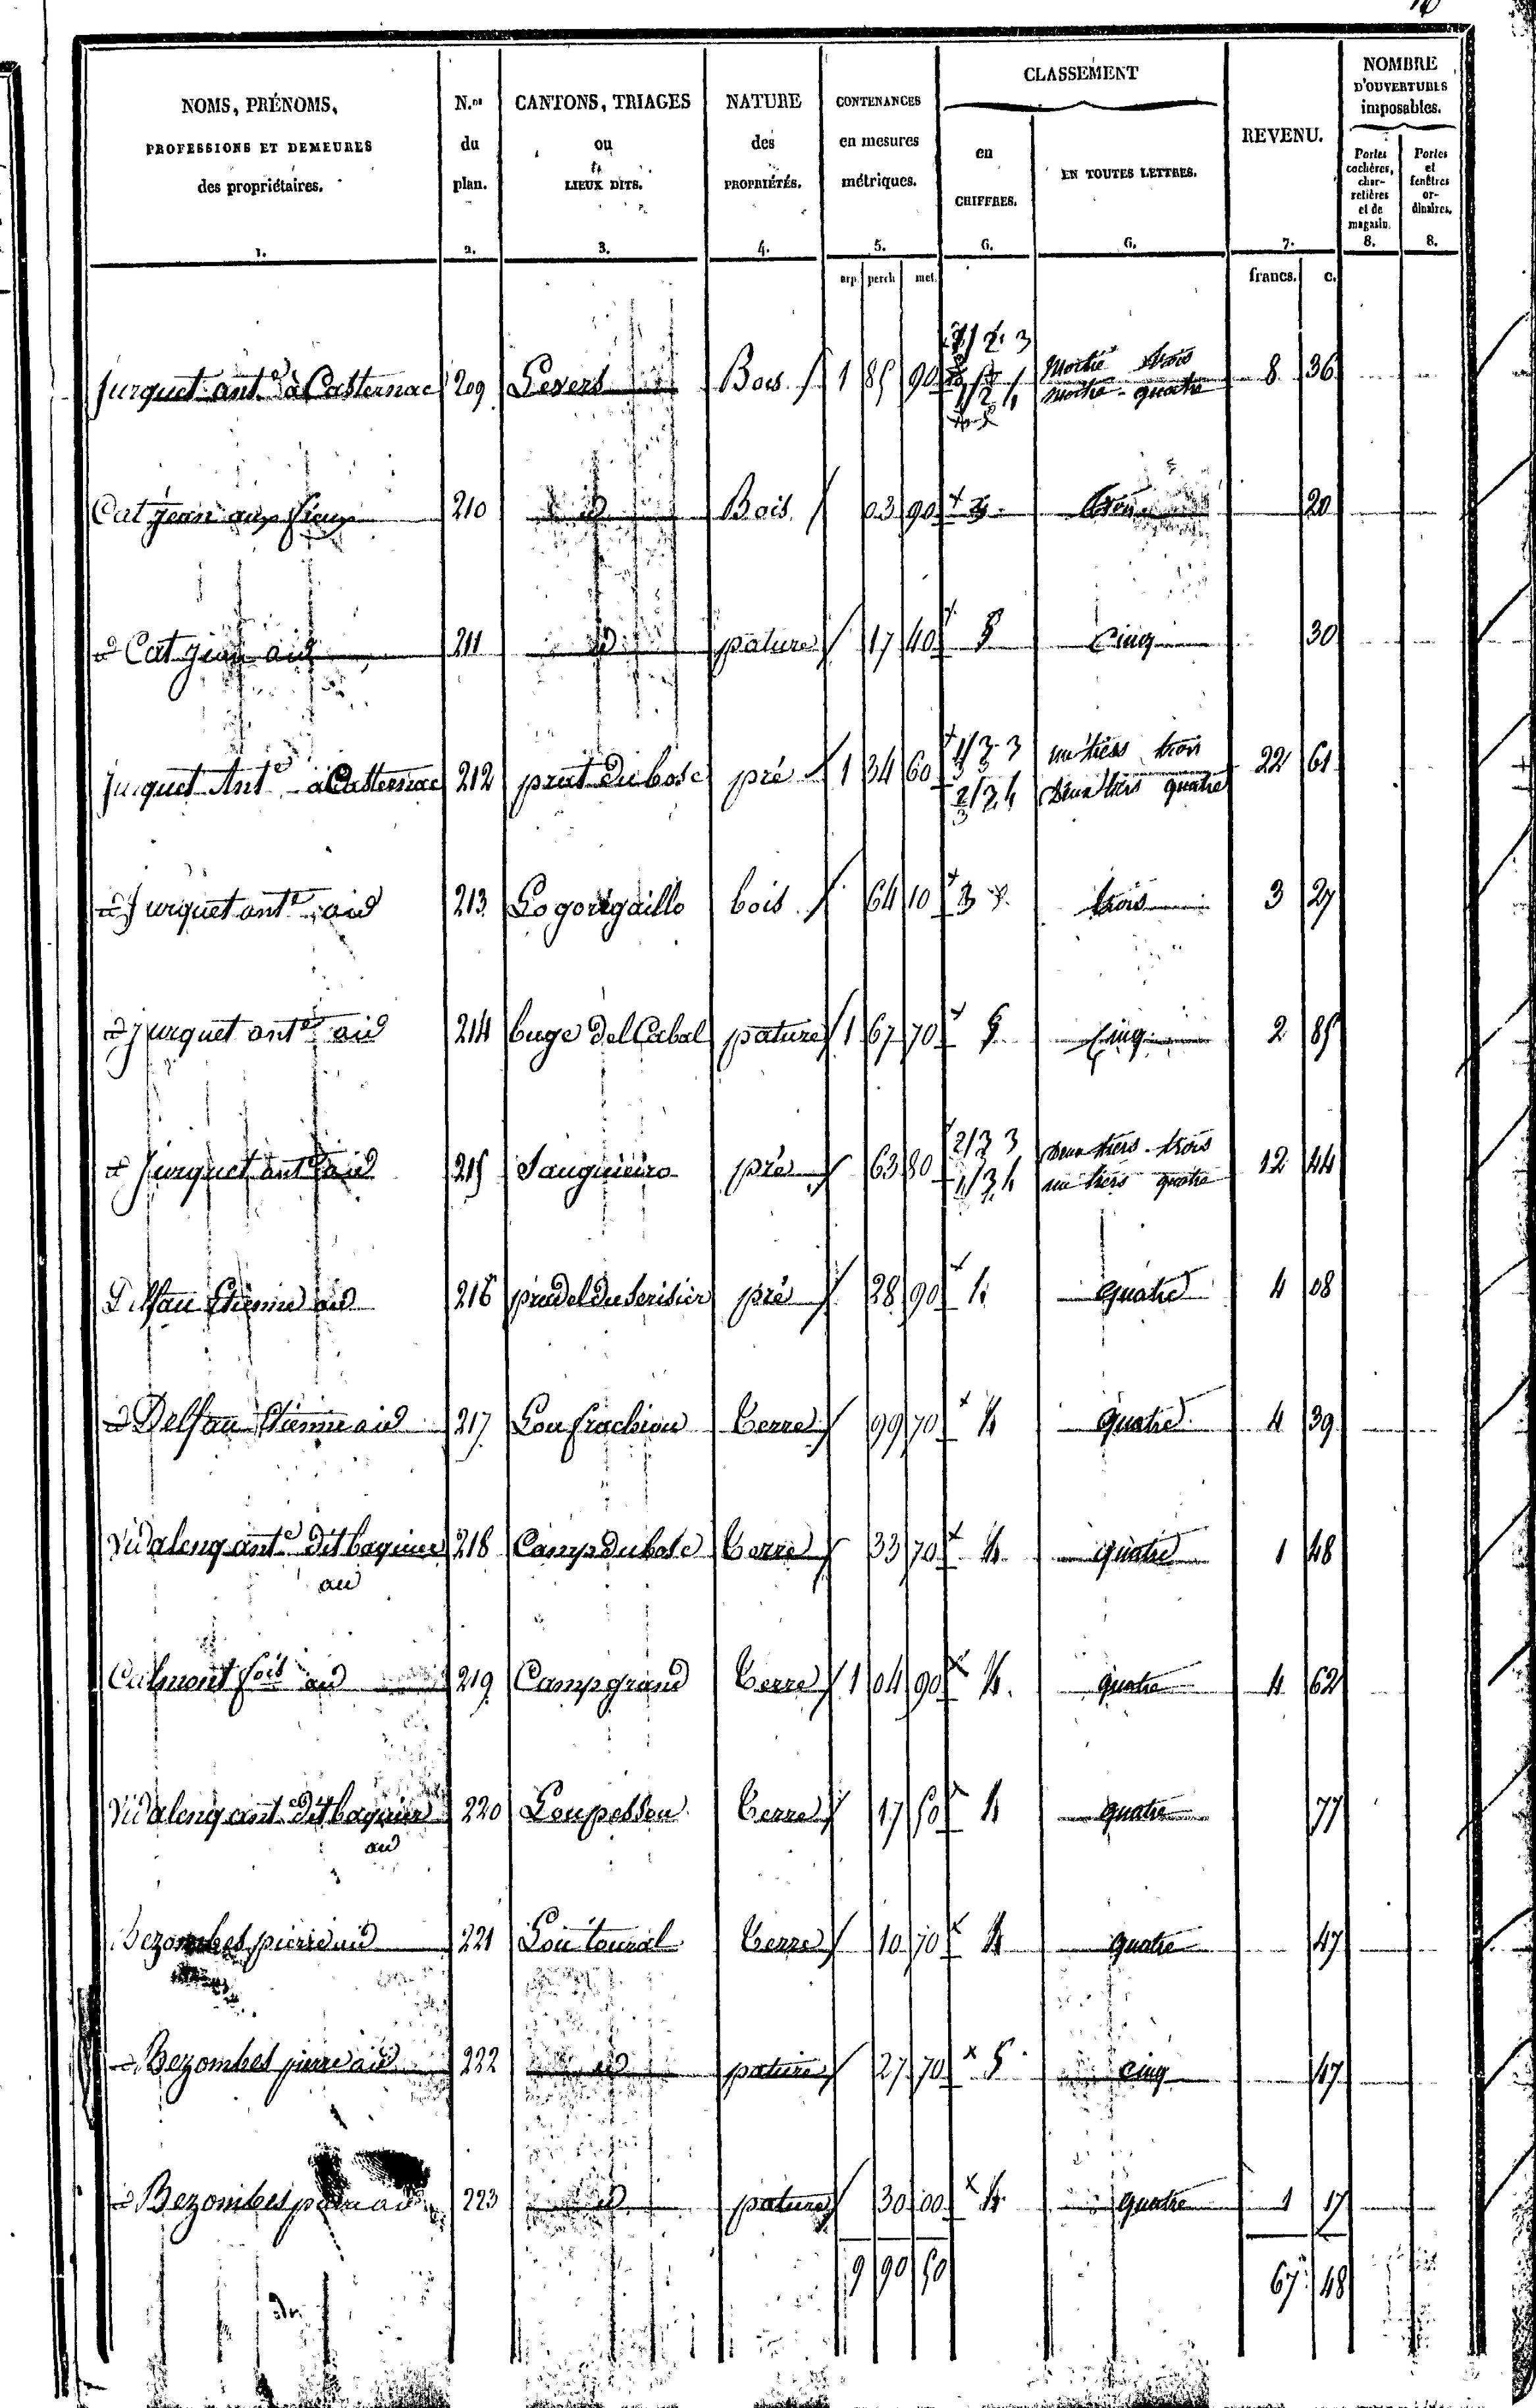 CLASSEMENT
NOMBRE D'OUVERTURES imposables.
NOMS, PRÉNOMS, PROFESSIONS ET DEMEURES des propriétaires.
N.os du plan.
CANTONS, TRIAGES ou LIEUX DITS.
NATURE des PROPRIÉTÉS.
CONTENANCES en mesures métriques.
en CHIFFRES.
EN TOUTES LETTRES.
REVENU.
Portes cochères, charretières et de magasin.
Portes et fenêtres ordinaires.
1. 2. 3. 4. 5. 6. 6. 7. 8. 8.
arp. perch met. francs. c.
Jurquet ant.e à Casternac 209 Bois 1 85 90 1/2 3 Moitié trois 8 36
1/2 4 moitié quatre
Cat jean aux fieux 210 id Bois 03 90 3 trois 20
d Cat jean aud 211 id pature 17 40 5 Cinq 30
Jurquet Ant.e à Casternac 212 prat du bosc pré 1 34 60 1/3 3 un tiers trois 22 61
2/3 4 deux tiers quatre
d Jurquet ant.e aud 213 bois 64 10 3 trois 3 27
d Jurquet ant.e aud 214 buge del Cabal pature 1 67 70 5 Cinq 2 85
d Jurquet ant.e aud 215 pré 63 80 2/3 3 deux tiers trois 12 44
1/3 4 un tiers quatre
Delfau Etienne aud 216 pré 28 90 4 quatre 4 08
d Delfau Etienne aud 217 Lou frachiou terre 99 70 4 quatre 4 39
Vidalenq ant.e dit bagnier 218 Camp du bosc terre 33 70 4 quatre 1 48
aud
Calmont fois aud 219 Camp grand terre 1 04 90 4 quatre 4 62
Vidalenq ant.e dit bagnier 220 Lou pessou terre 17 50 4 quatre 77
aud
Bezombes pierre aud 221 Lou toural terre 10 70 4 quatre 47
d Bezombes pierre aud 222 id pature 27 70 5 cinq 47
d Bezombes pierre aud 223 id pature 30 00 4 quatre 1 17
9 90 50 67 48